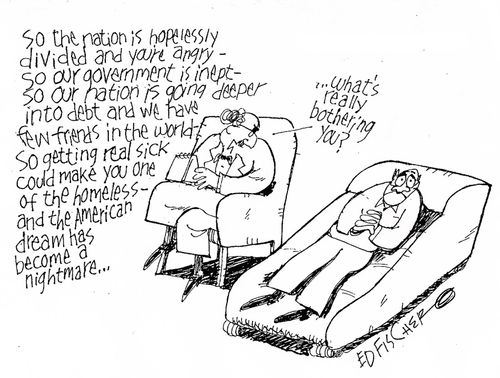 So the nation is hopelessly
divided and you're angry -
So our government is inept -
So our nation is going deeper
into debt and we have
few friends in the world -
So getting real sick
could make you one
of the homeless -
and the American
dream has
become a
nightmare...
...what's
really
bothering
you?
ED FISCHER